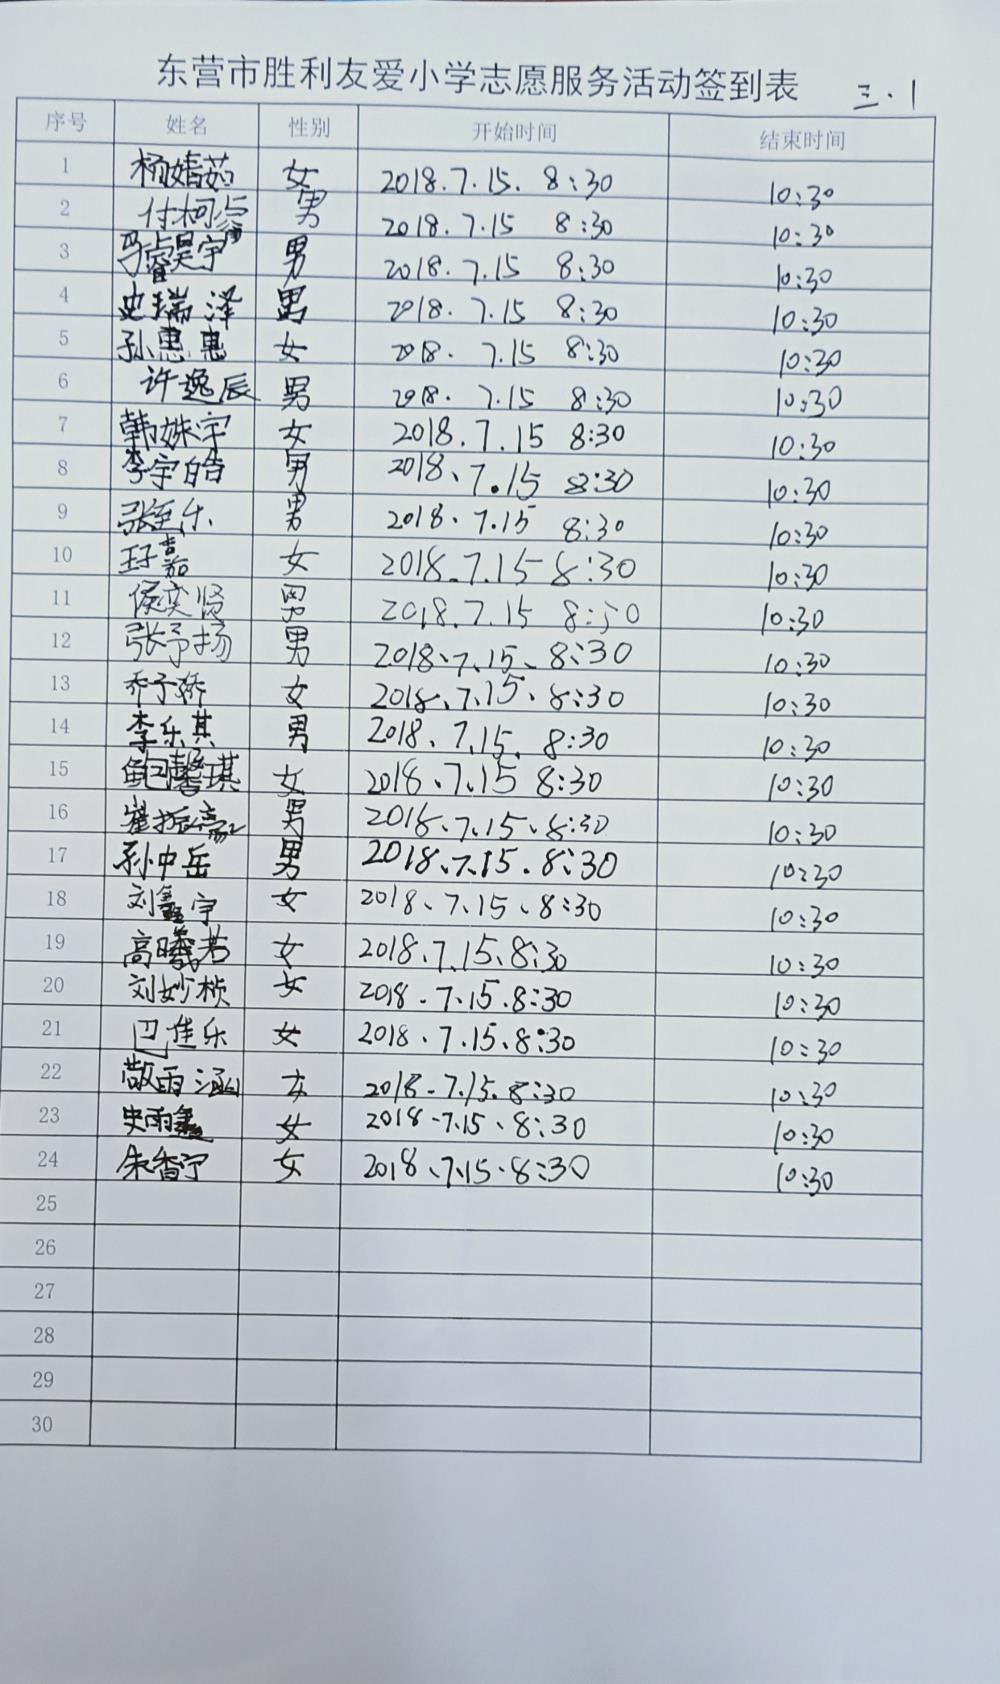 东营市胜利友爱小学志愿服务活动签到表 三.1
序号 姓名 性别 开始时间 结束时间
1 杨婧茹 女 2018.7.15. 8:30 10:30
2 付柯 男 2018.7.15 8:30 10:30
3 马睿昊宇 男 2018.7.15 8:30 10:30
4 史瑞泽 男 2018.7.15 8:30 10:30
5 孙惠惠 女 2018.7.15 8:30 10:30
6 许逸辰 男 2018.7.15 8:30 10:30
7 韩姝宇 女 2018.7.15 8:30 10:30
8 李宇皓 男 2018、7.15 8:30 10:30
9 张至乐 男 2018、7.15 8:30 10:30
10 王子嘉 女 2018.7.15 8:30 10:30
11 侯奕贤 男 2018.7.15 8:30 10:30
12 张予扬 男 2018、7、15、8:30 10:30
13 乔予娇 女 2018、7、15、8:30 10:30
14 李乐其 男 2018、7、15、8:30 10:30
15 鲍馨琪 女 2018、7、15 8:30 10:30
16 崔振豪 男 2018、7、15、8:30 10:30
17 孙中岳 男 2018、7、15.8:30 10:30
18 刘鑫宇 女 2018、7、15、8:30 10:30
19 高曦若 女 2018、7、15、8:30 10:30
20 刘妙桢 女 2018.7.15.8:30 10:30
21 巴佳乐 女 2018、7、15、8:30 10:30
22 雨涵 女 2018-7.15.8:30 10:30
23 史雨鑫 女 2018-7.15、8:30 10:30
24 朱香宁 女 2018、7.15.8:30 10:30
25
26
27
28
29
30